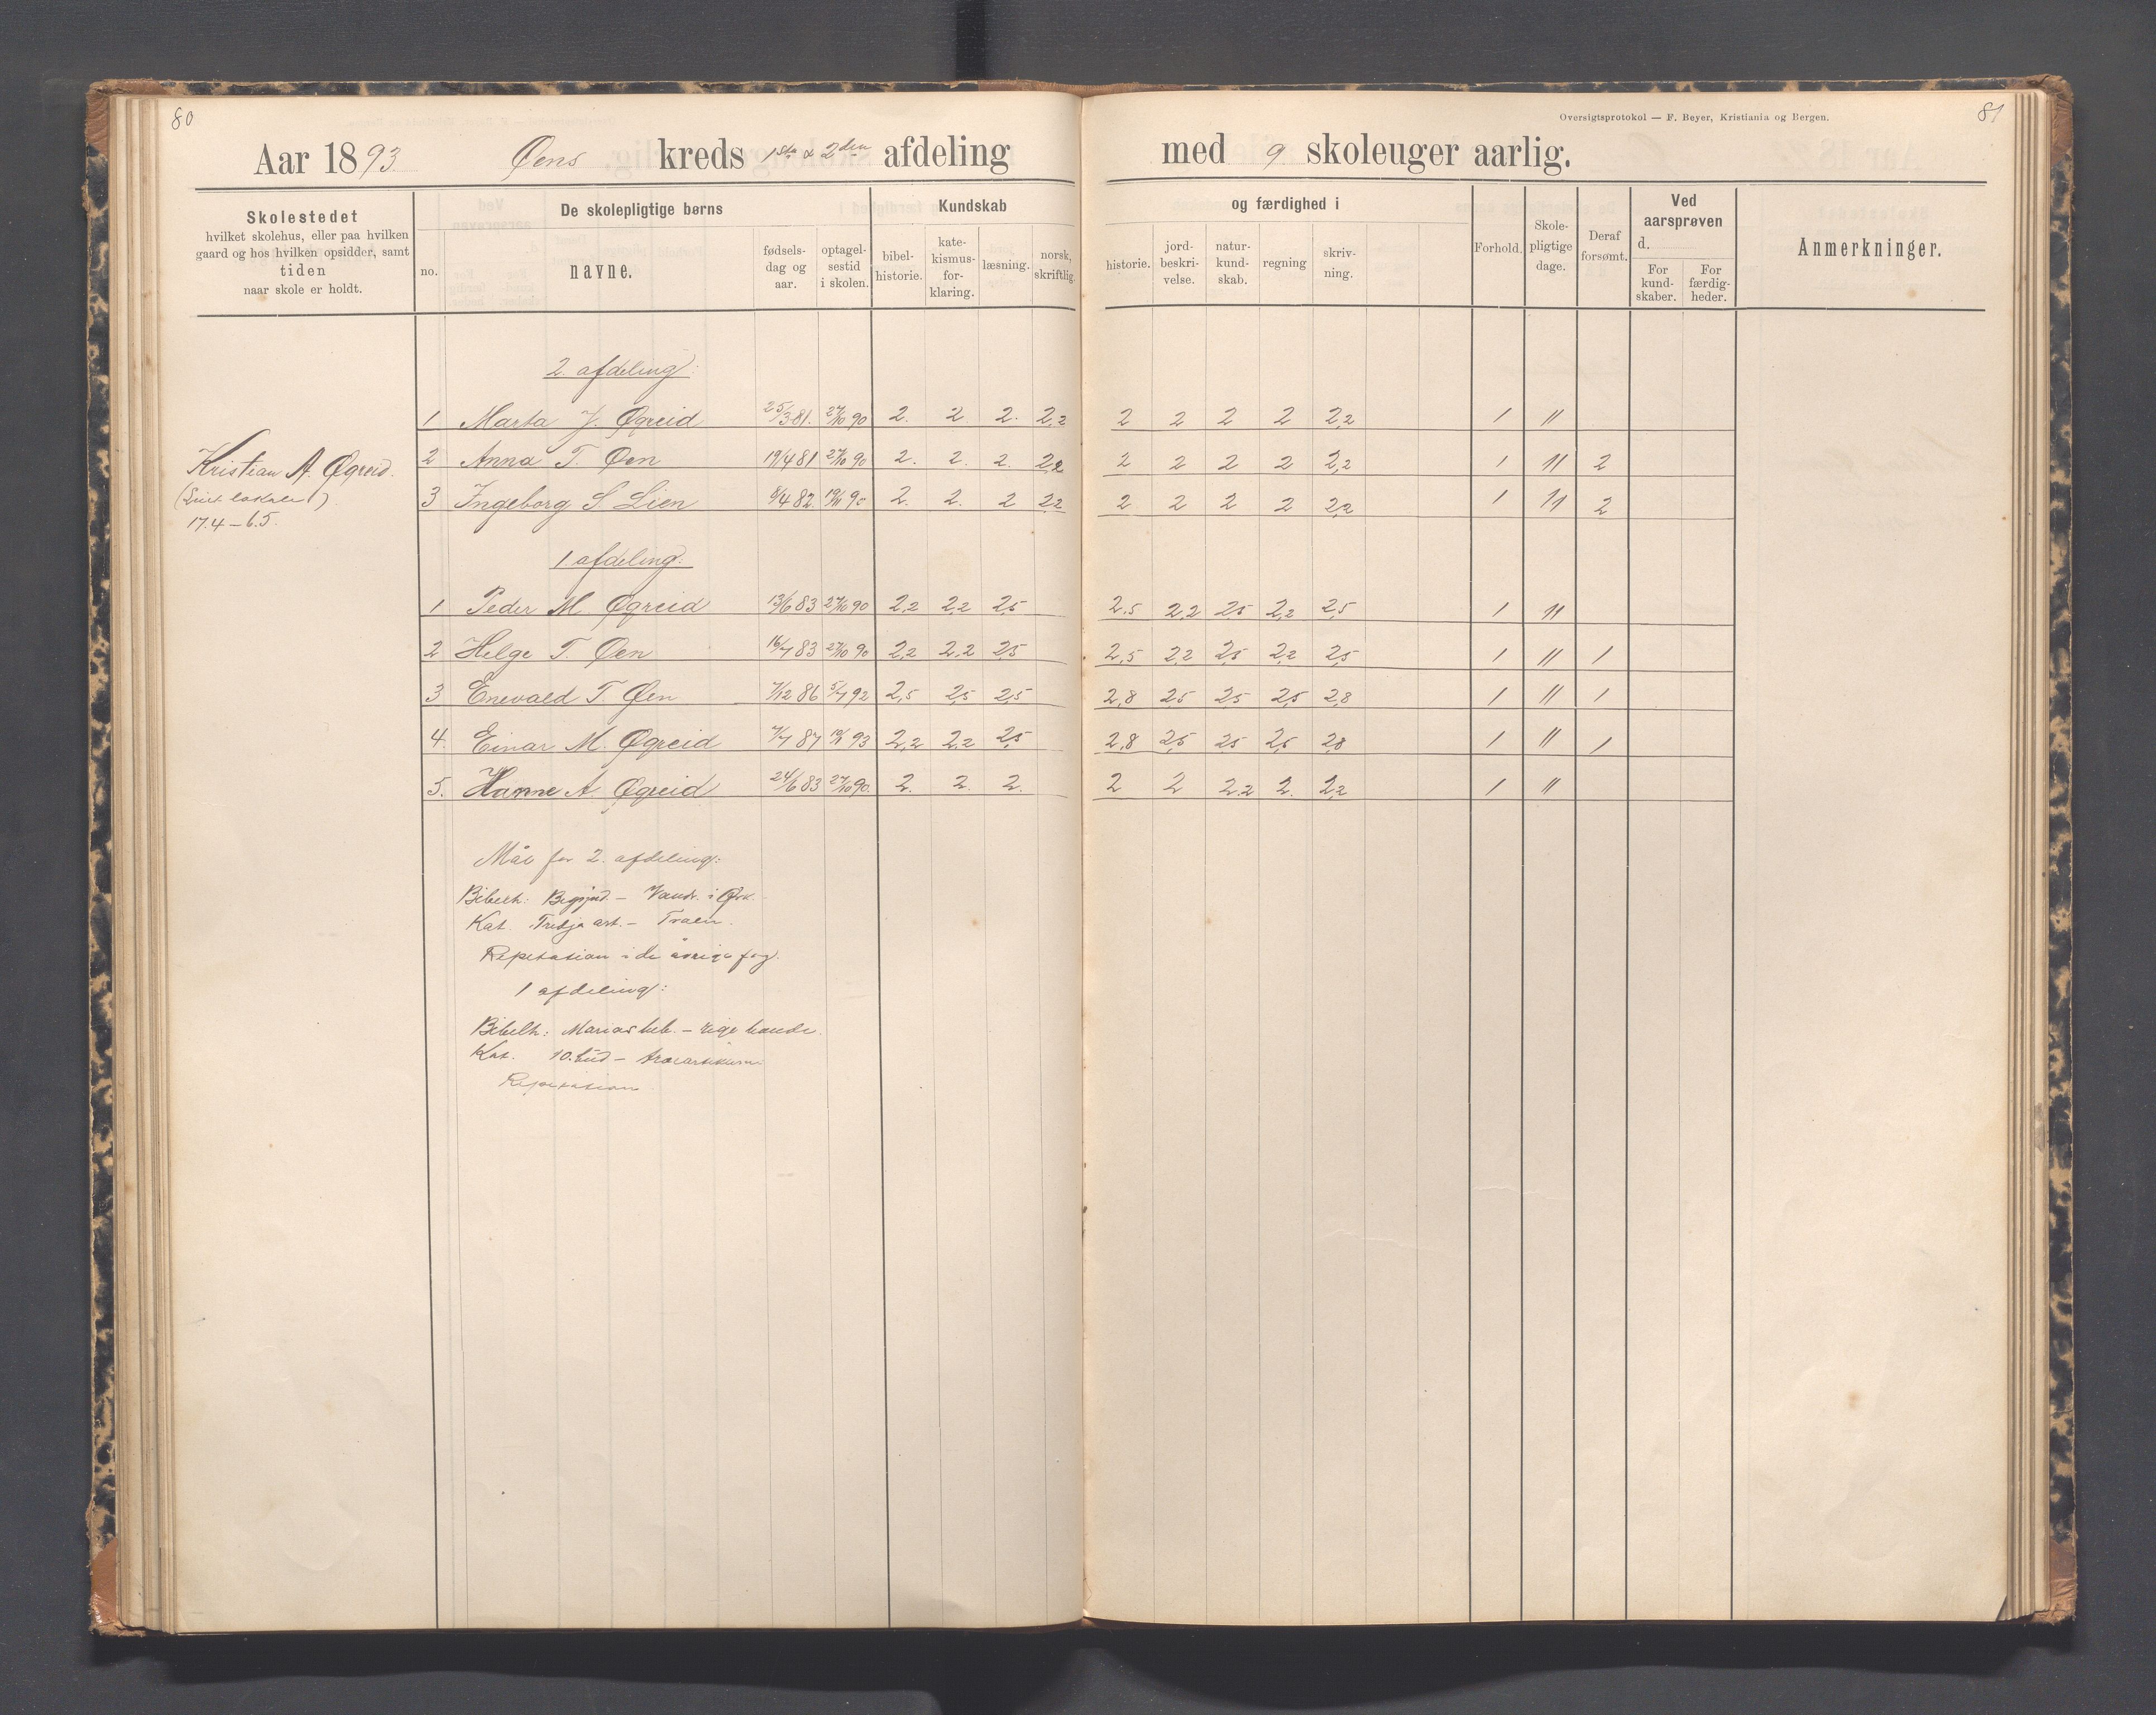 80
Aar 1893 Øens kreds 1ste & 2den afdeling
Skolestedet
hvilket skolehus, eller paa hvilken
gaard og hos hvilken opsidder, samt
tiden
naar skole er holdt.
De skolepligtige børns
no.
navne.
fødsels-
dag og
aar.
optagel-
sestid
i skolen.
Kundskab
bibel-
historie.
kate-
kismus-
for-
klaring.
læsning.
norsk,
skriftlig.
Oversigtsprotokol — F. Beyer, Kristiania og Bergen.
81
med 9 skoleuger aarlig.
og færdighed i
historie.
jord-
beskri-
velse.
natur-
kund-
skab.
regning
skriv-
ning.
Forhold.
Skole-
pligtige
dage.
Deraf
forsømt.
Ved
aarsprøven
d.
For
kund-
skaber.
For
færdig-
heder.
Anmerkninger.
2. afdeling:
1 Marta J. Øgreid 25/3 81. 27/10 90 2. 2 2. 2,2 2 2 2 2 2,2 1 11
2 Anna T. Øen 19/4 81 27/10 90 2. 2. 2. 2,2 2 2 2 2 2,2 1 11 2
3 Ingeborg S. Lien 8/4 82. 90 2. 2. 2 2,2 2 2 2 2 2,2 1 11 2
Kristian A. Øgreid.
17.4 – 6.5.
1 afdeling:
1 Peder M. Øgreid 13/6 83 27/10 90 2,2 2,2 2,5 2,5 2,2 2,5 2,2 2,5 1 11
2 Helge T. Øen 16/7 83 27/10 90 2,2 2,2 2,5 2,5 2,2 2,5 2,2 2,5 1 11 1
3 Enevald T. Øen 7/12 86 5/7 92 2,5 2,5 2,5 2,8 2,5 2,5 2,5 2,8 1 11 1
4. Einar M. Øgreid 7/7 87 93 2,2 2,2 2,5 2,8 2,5 2,5 2,5 2,8 1 11 1
5. Hanne A Øgreid 24/6 83 27/10 90. 2. 2. 2. 2 2 2,2 2. 2,2 1 11
Mål for 2. afdeling:
Bibelh: – Vandr. i Ørk.
Kat. Tredje art. –
Repetasian i de øvrige fag.
1 afdeling:
Bibelh: Marias beb. – rige bonde.
Kat. 10. bud –
Repetasian